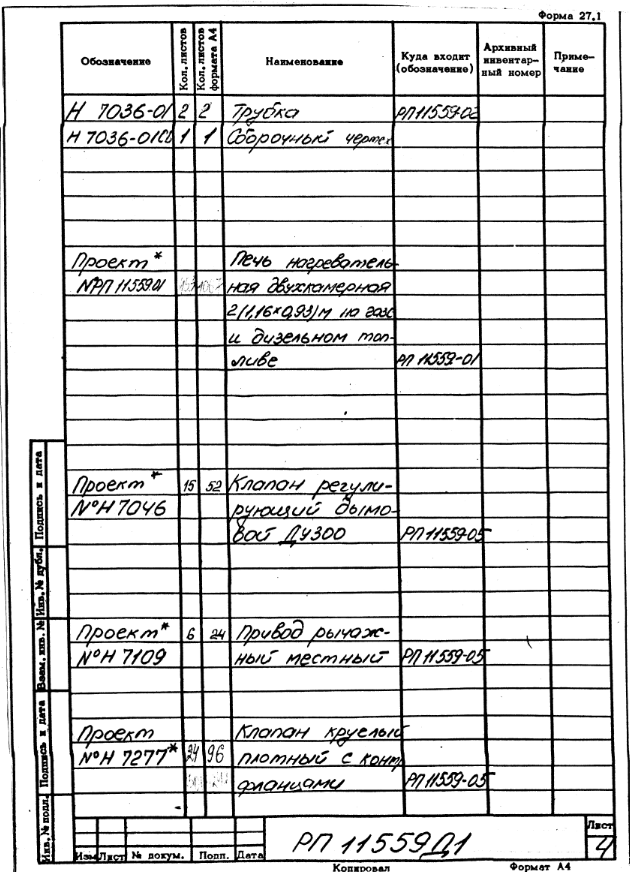 Форма 27.1
Обозначение Кол. листов Кол. листов формата А4 Наименование Куда входит (обозначение) Архивный инвентар-ный номер Приме-чание
Н 7036-01 2 2 Трубка РП11559-02
Н 7036-01СБ 1 1 Сборочный чертеж
Проект* Печь нагреватель-
№РП 11559.01 ная двухкамерная
2(1,16×0,93)м на газе
и дизельном топ-
ливе РП 11559-01
Проект* 15 52 Клапан регули-
№Н 7046 рующий дымо-
вой ДУ300 РП 11559-05
Проект* 6 24 Привод рычаж-
№Н 7109 ный местный РП 11559-05
Проект Клапан круглый
№Н 7277* 24 96 плотный с конт
фланцами РП 11559-05
Инв. № подл. Подпись и дата Взам. инв. № Инв. № дубл. Подпись и дата
РП 11559Д1
Лист
4
Изм Лист № докум. Подп. Дата
Копировал Формат А4